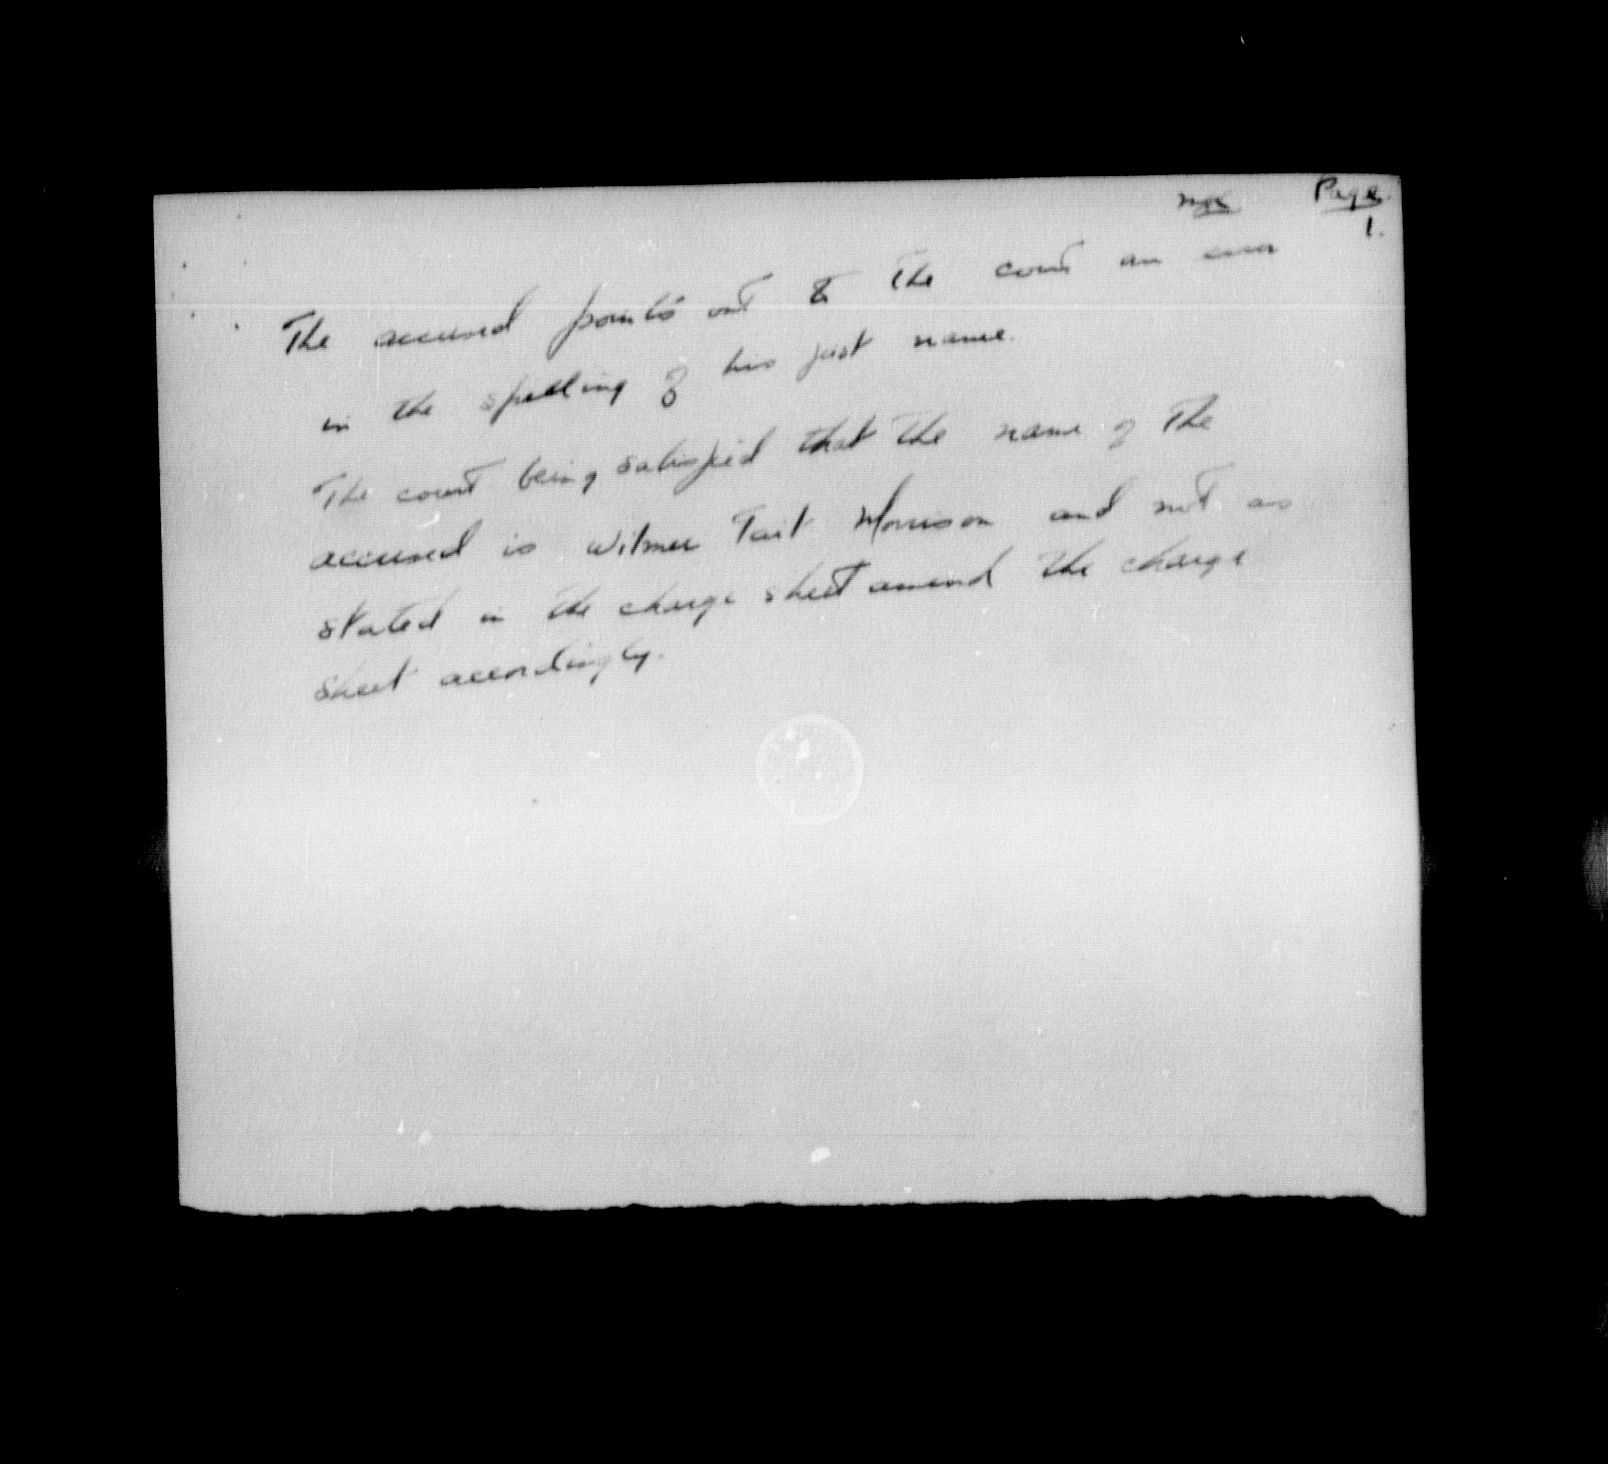 Page
1.
The accused points out to the court an error
in the spelling of his just name.
The court being satisfied that the name of the
accused is Wilmer Tait Morrison and not as
stated in the charge sheet amend the charge
sheet accordingly.